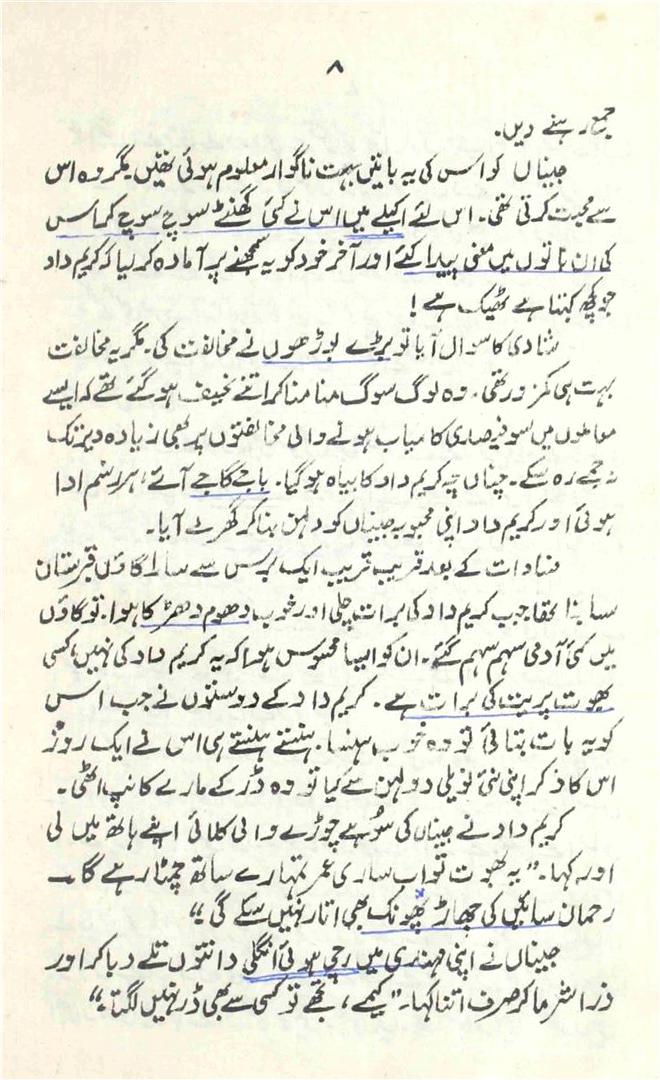 ۸
جمع رہنے دیں۔
جیناں کو اس کی یہ باتیں بہت ناگوار معلوم ہوئی تھیں۔ مگر وہ اس
سے محبت کرتی تھی۔ اس لئے اکیلے میں اس نے کئی گھنٹے سوچ سوچ کر اس
کی ان باتوں میں معنی پیدا کئے اور آخر خود کو یہ سمجھنے پر آمادہ کر لیا کہ کریم داد
جو کچھ کہتا ہے ٹھیک ہے!
شادی کا سوال آیا تو بڑے بوڑھوں نے مخالفت کی۔ مگر یہ مخالفت
بہت ہی کمزور تھی۔ وہ لوگ سوگ منا منا کر اتنے نحیف ہو گئے تھے کہ ایسے
معاملوں میں سو فیصدی کامیاب ہونے والی مخالفتوں پر بھی زیادہ دیر تک
نہ جمے رہ سکے۔ چناں چہ کریم داد کا بیاہ ہو گیا۔ باجے گاجے آئے، ہر رسم ادا
ہوئی اور کریم داد اپنی محبوبہ جیناں کو دلہن بنا کر گھر لے آیا۔
فسادات کے بعد قریب قریب ایک برس سے سارا گاؤں قبرستان
سا بنا تھا جب کریم داد کی برات چلی اور خوب دھوم دھڑکا ہوا۔ تو گاؤں
میں کئی آدمی سہم سہم گئے۔ ان کو ایسا محسوس ہوا کہ یہ کریم داد کی نہیں، کسی
بھوت پریت کی برات ہے۔ کریم داد کے دوستوں نے جب اس
کو یہ بات بتائی تو وہ خوب ہنسا۔ ہنستے ہنستے ہی اس نے ایک روز
اس کا ذکر اپنی نئی نویلی دولہن سے کیا تو وہ ڈر کے مارے کانپ اٹھی۔
کریم داد نے جیناں کی سُوہے چوڑے والی کلائی اپنے ہاتھ میں لی
اور کہا۔ ”یہ بھوت تو اب ساری عمر تمہارے ساتھ چمٹا رہے گا۔
رحمان سائیں کی جھاڑ پھونک بھی اتار نہیں سکے گی۔“
جیناں نے اپنی مہندی میں رچی ہوئی انگلی دانتوں تلے دبا کر اور
ذرا شرما کر صرف اتنا کہا۔ ”کیمے، تجھے تو کسی سے بھی ڈر نہیں لگتا۔“